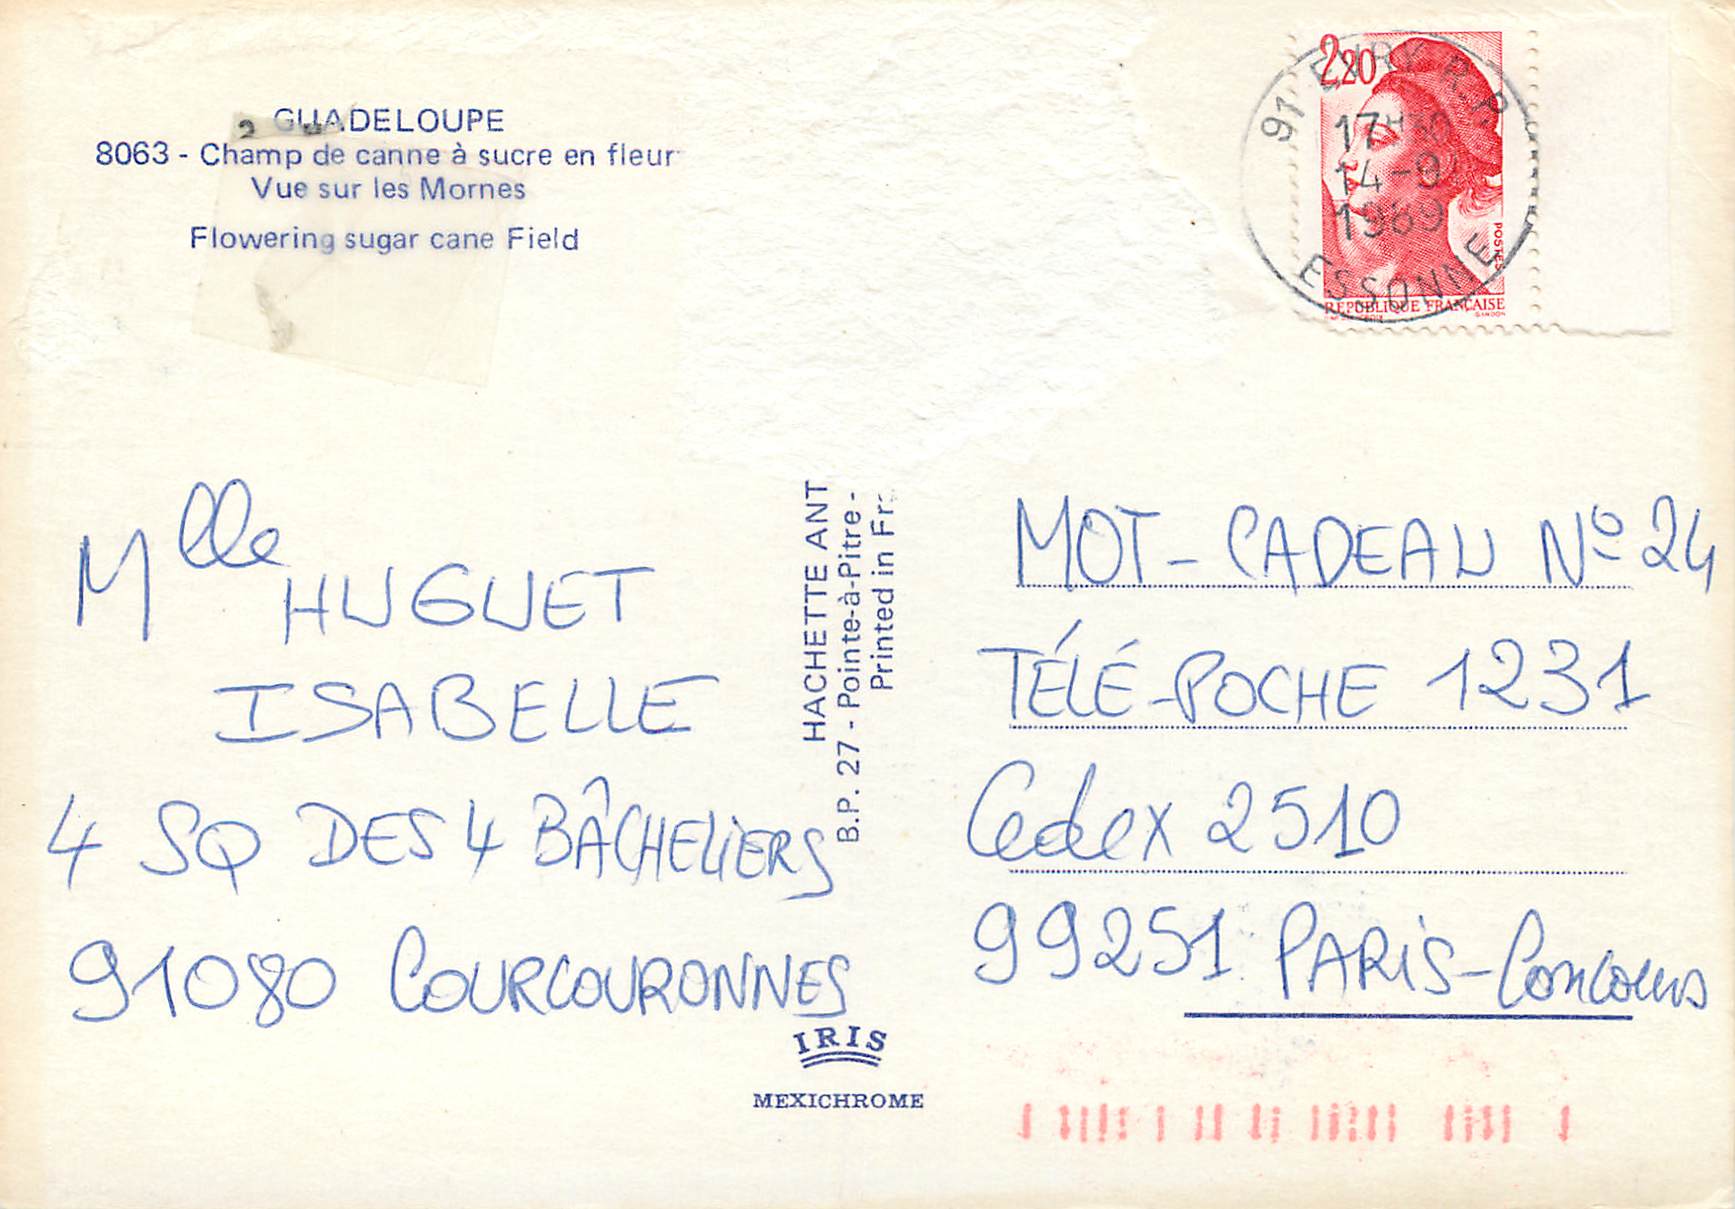 GUADELOUPE
8063 - Champ de canne à sucre en fleur
Vue sur les Mornes
Flowering sugar cane Field
2,20
POSTES
REPUBLIQUE FRANÇAISE
GANDON
91 EVRY R.P.
17H
14-9
1989
ESSONNE
Mlle HUGUET
ISABELLE
4 SQ DES 4 BÂCHELIERS
91080 COURCOURONNES
HACHETTE ANT
B.P. 27 - Pointe-à-Pitre -
Printed in Fr
IRIS
MEXICHROME
MOT-CADEAU Nº 24
TÉLÉ-POCHE 1231
Cedex 2510
99251 PARIS-Concours